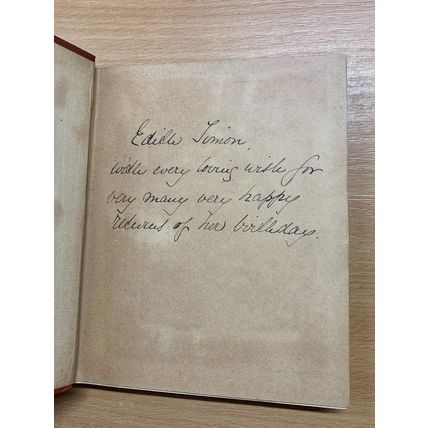 Edith Simon,
with every loving wish for
very many very happy
returns of her birthday.